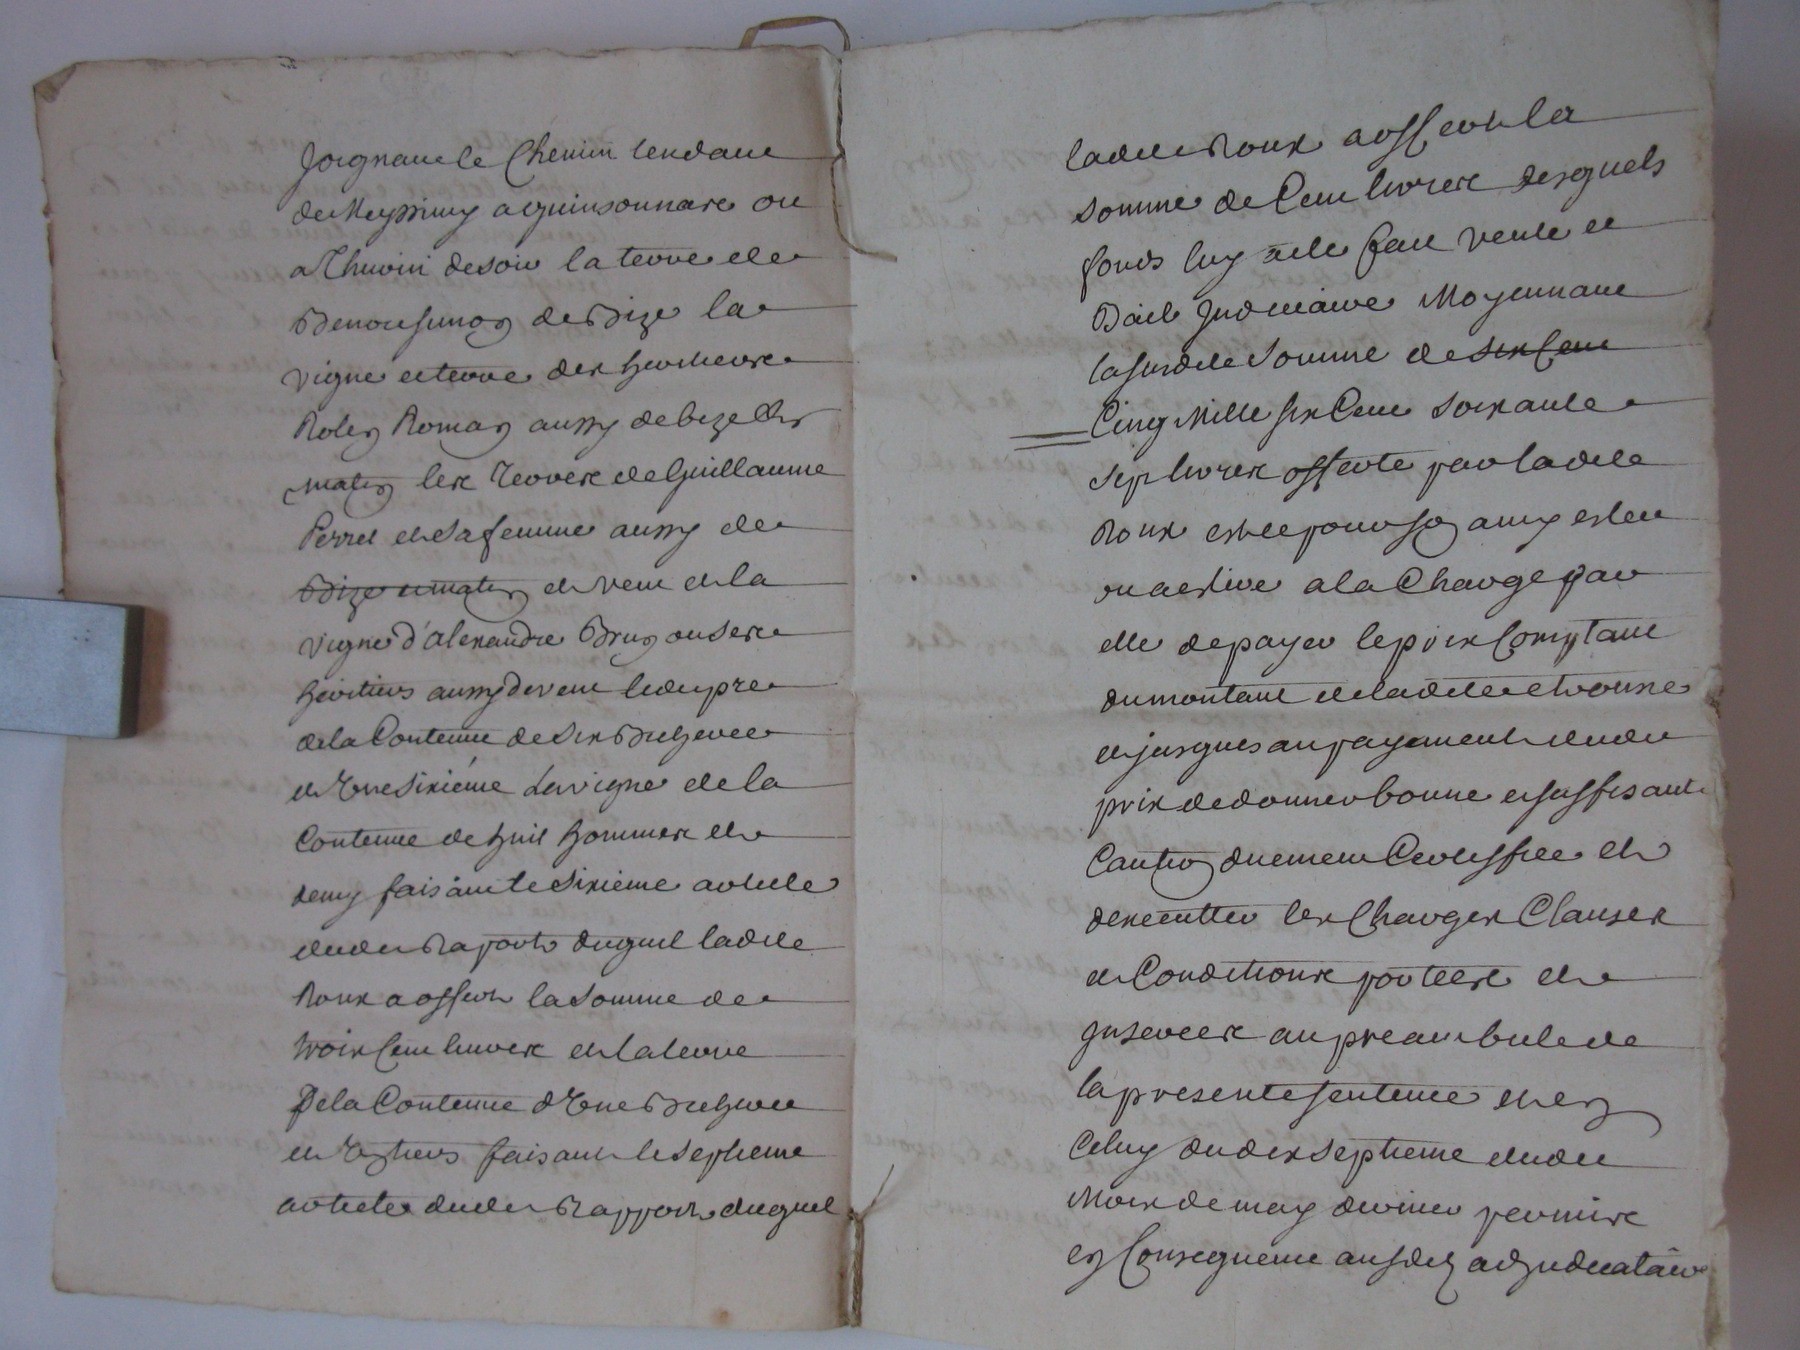 Joignant le Chemin tendant
de Meyssimy a quinsonnare ou
a Thurin de soir la terre de
Benoit simon de bize la
vigne et terre des heritiers
Roley Romay aussy de bize
matin les Terres de Guillaume
Perret et sa femme aussy de
bize et matin et vent et la
vigne d'alexandre Brun ou ses
heritiers aussy de vent ledit pre
de la Contenue de six bicherée
et Une sixiéme La vigne de la
Contenue de huit hommes et
demy faisant le sixieme article
dudit Raport duquel ladite
Roux a offert la somme de
trois Cent livres et la terre
De la Contenue d'Une bicherée
et Un tiers faisant le septieme
article dudit Rapport duquel
ladite Roux a offert la
somme de Cent livres desquels
fonds luy a ete fait vente et
Bail Judiciaire Moyennant
la susdite somme de six Cent
Cinq Mille six Cent soixante
sept livres offerte par ladite
Roux estre pour son amy esleu
ou a eslire a la Charge par
elle de payer le prix Comptant
du montant de ladite etrousse
et jusques au payement dudit
prix de donner bonne et suffisante
Caution duement Certiffiée et
dexecutter les Charges Clauses
et Conditions portées et
Inserées au preambule de
la presente sentence et en
Celuy du dix septieme dudit
Mois de may dernier permis
en Consequence ausdits adjudicataire